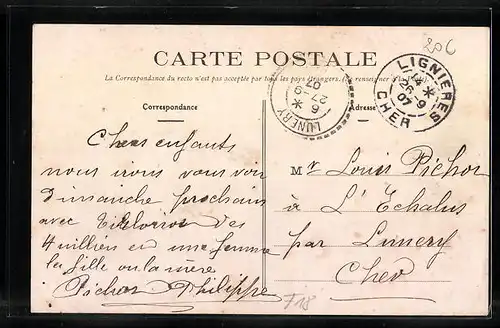 20C
CARTE POSTALE
La Correspondance du recto n'est pas acceptée par tous les pays étrangers. (Se renseigner à la Poste)
Correspondance
Adresse
LIGNIERES
14
26-9
07
CHER
LUNERY
27-9
07
Chers enfants
nous irons vous voir
dimanche prochain
avec des
4 et une femme
la fille ou la mère
Pichon Philippe
Mr Louis Pichon
à L'Echalus
par Lunery
Cher
F18